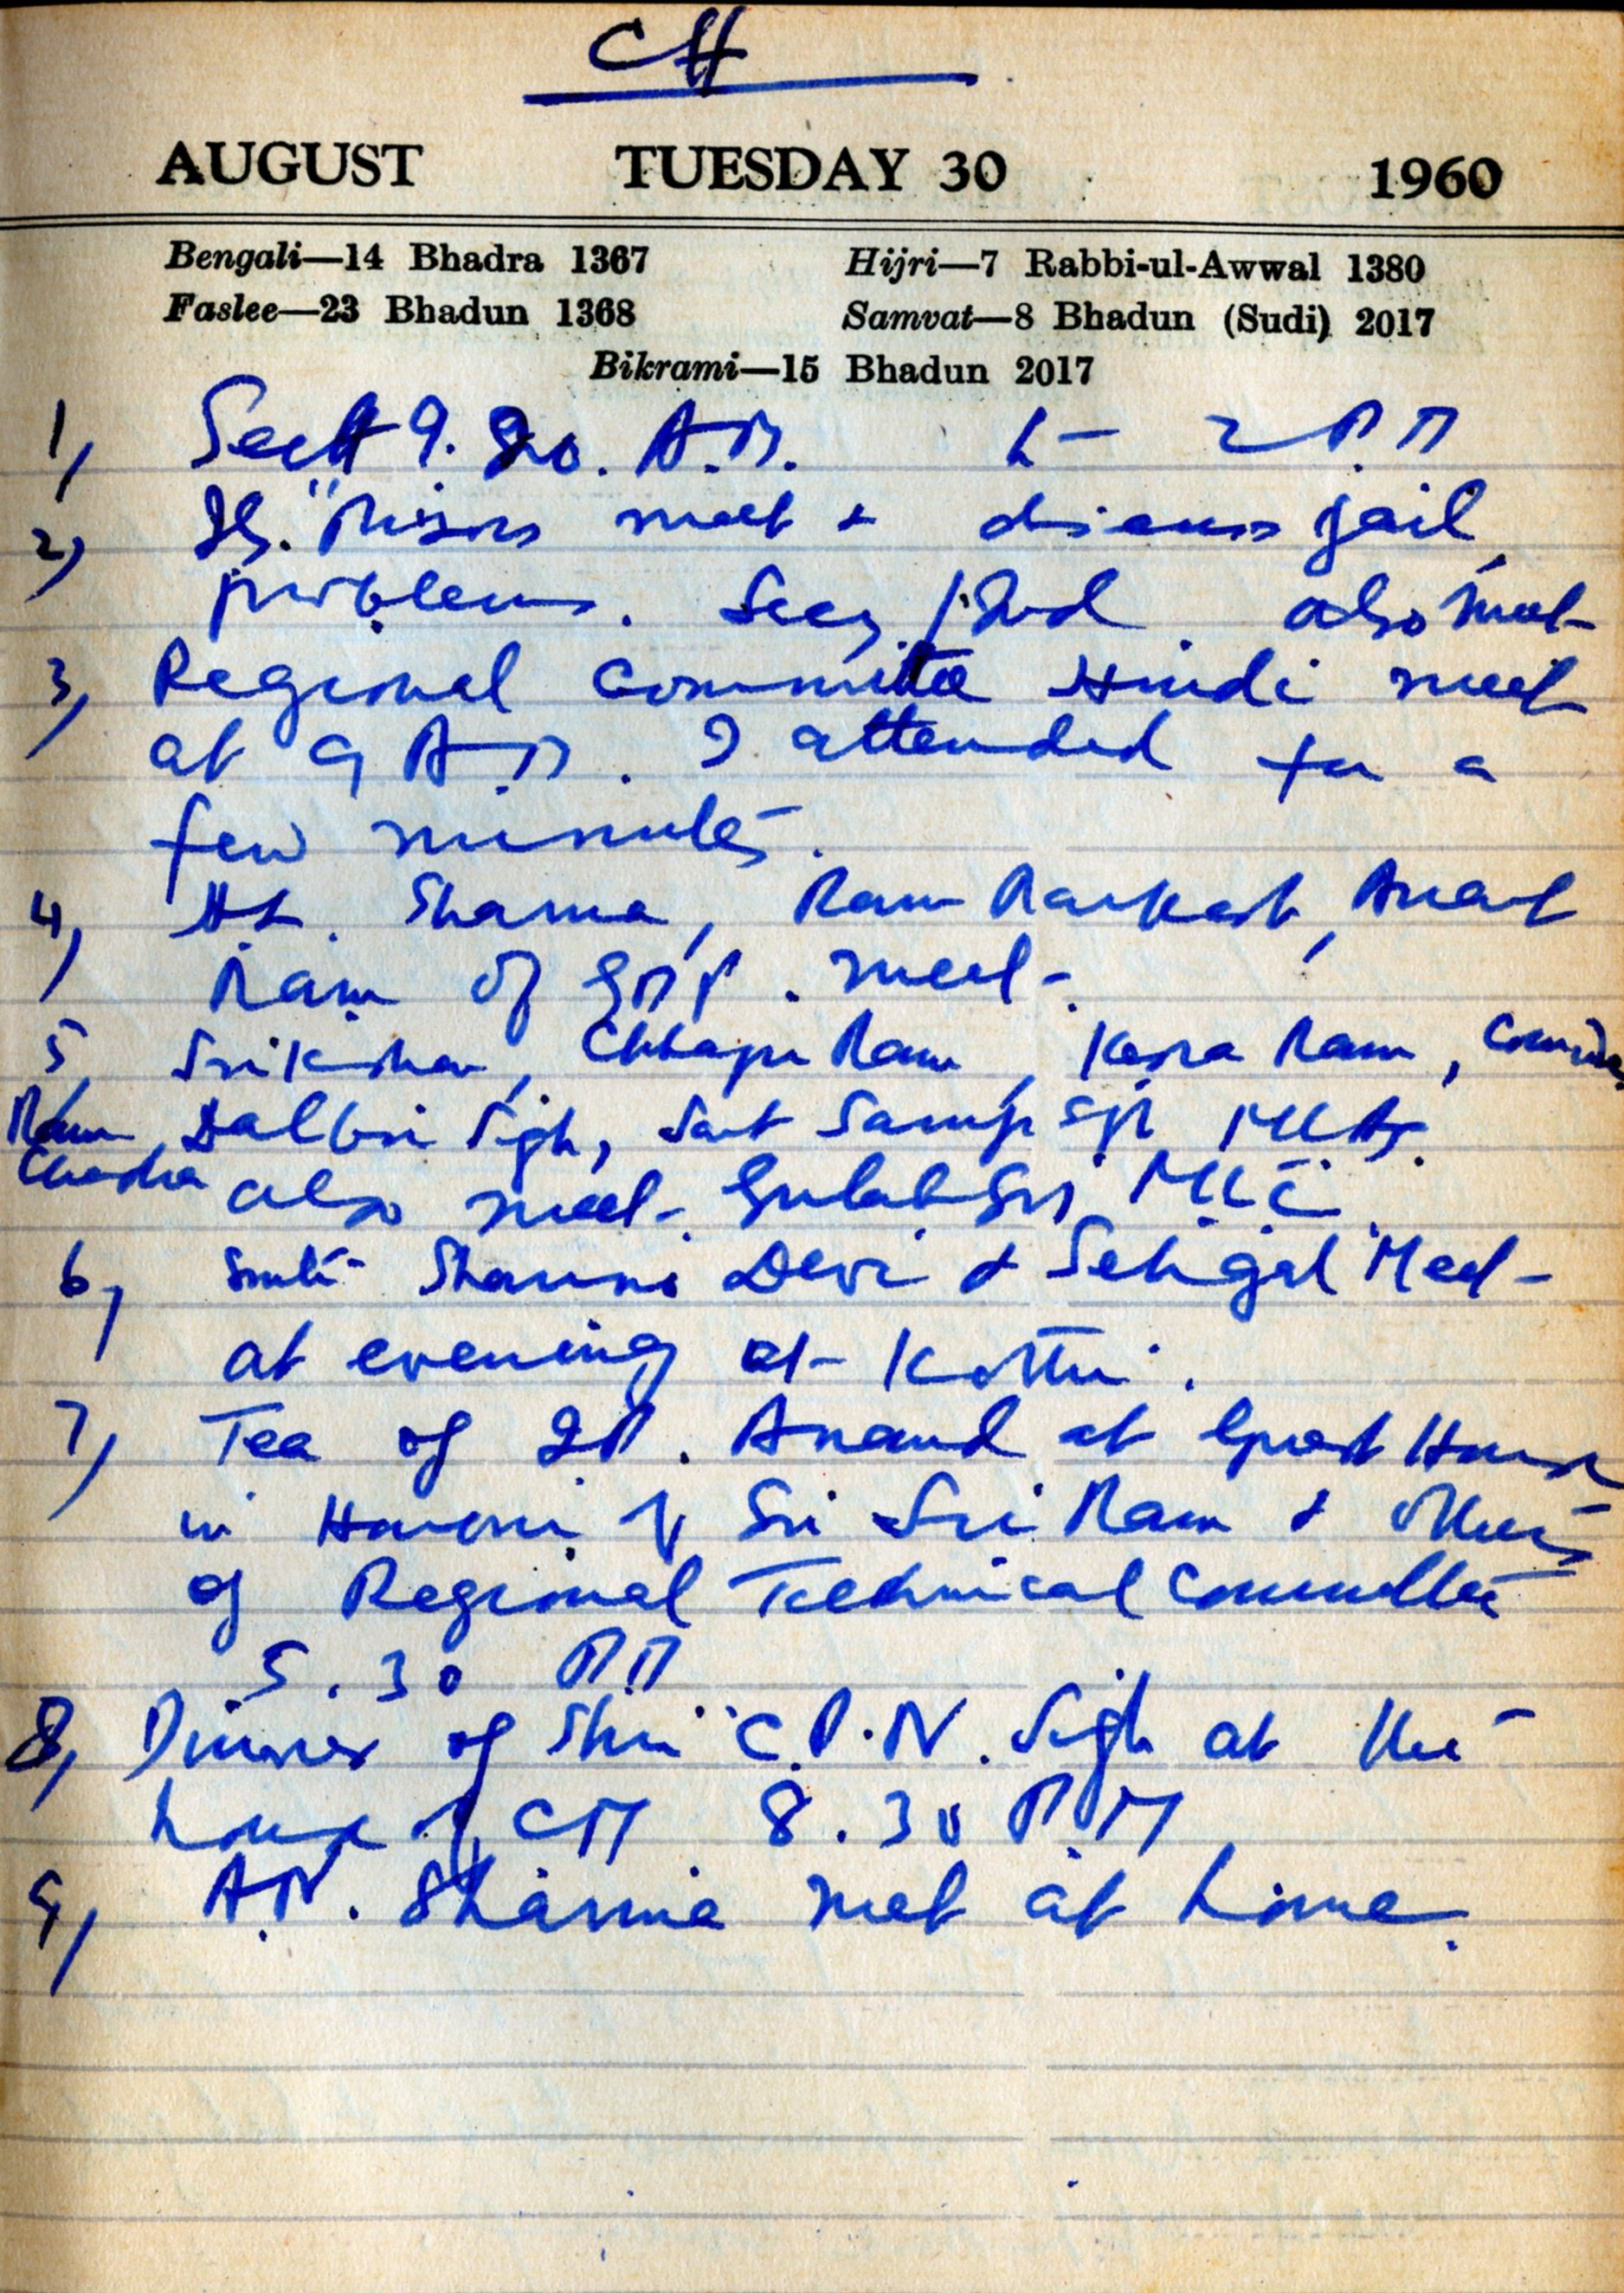 CH
AUGUST TUESDAY 30 1960
Bengali—14 Bhadra 1367 Hijri—7 Rabbi-ul-Awwal 1380
Faslee—23 Bhadun 1368 Samvat—8 Bhadun (Sudi) 2017
Bikrami—15 Bhadun 2017
1, Sectt 9. A.M. to 2 P.M
2, IG. Prisons meet & discuss Jail
problems. Secy. also meet
3, Regional Committee Hindi meet
at 9 A.M. I attended for a
few minutes.
4, Sharma, Ram Parkash, Anant
Ram of meet.
5, Srikishan, Ram, Kesra Ram,
Ram Dalbir Singh, Sant Sarup MLAs.
Chandra also meet. Gulab MLC
6, Smti Shanno Devi & Sehgal Meet
at evening at Kothi.
7, Tea of Anand at Guest House
in Honour of Sri Sri Ram & Others
of Regional Technical Committee
5.30 PM
8, Dinner of Shri C.P.N. Singh at the
house of CM 8.30 P.M
9, A.N. Sharma met at home.